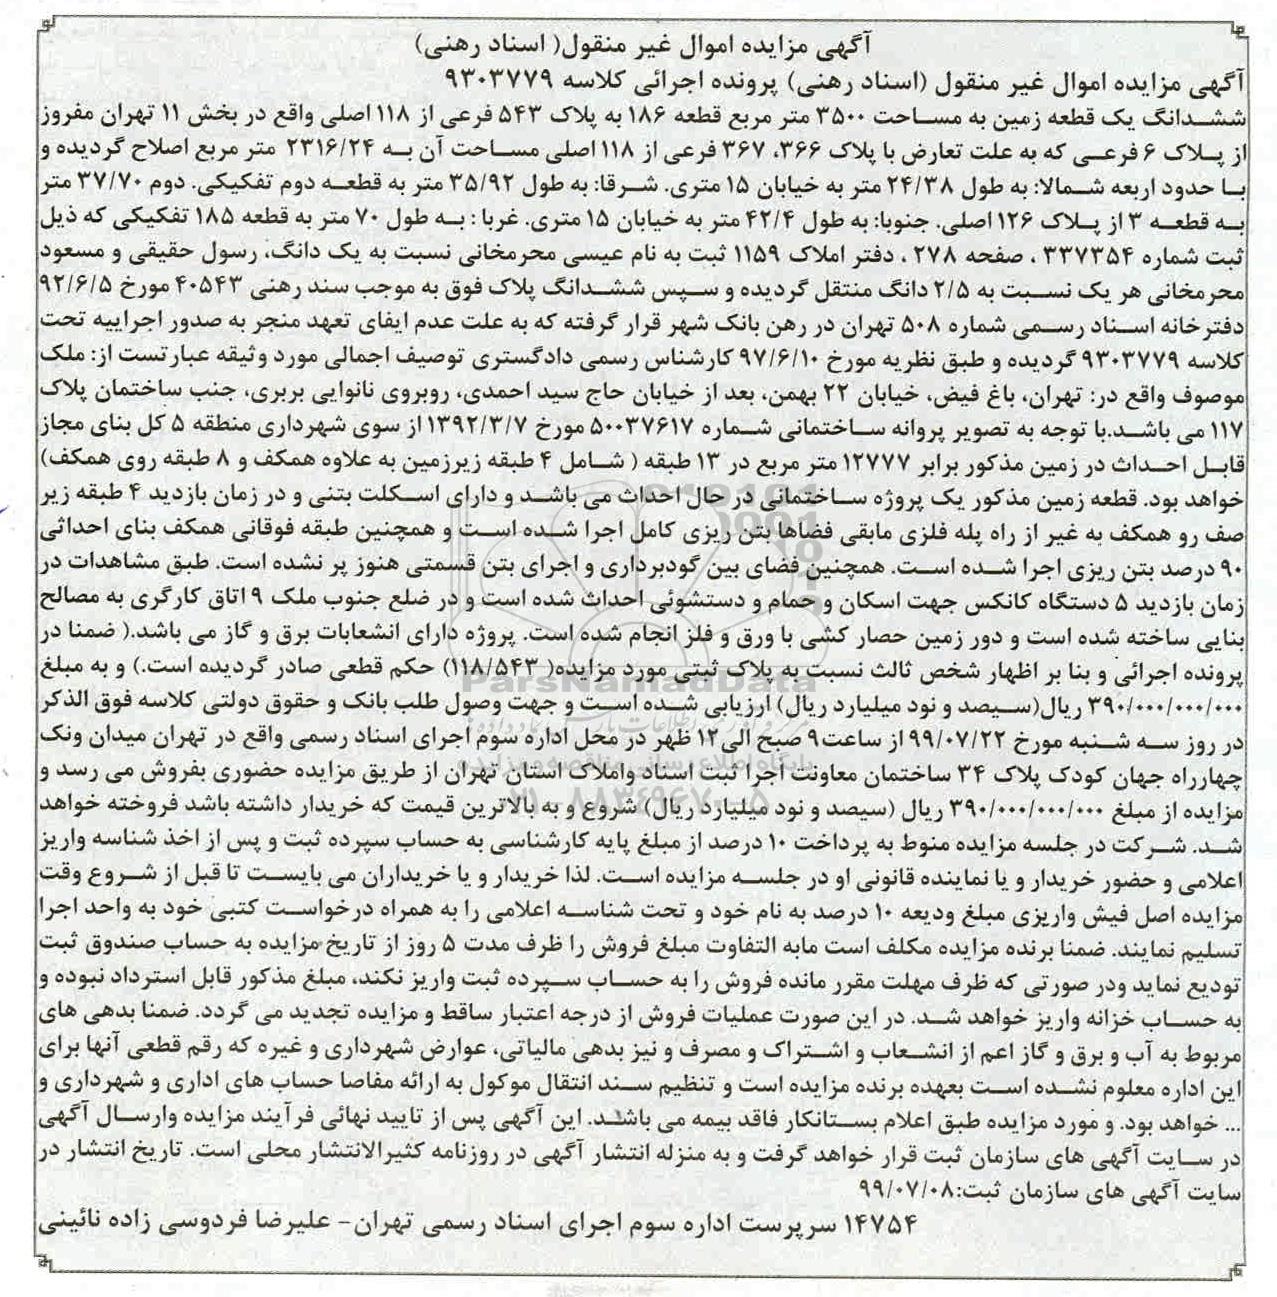 آگهی مزایده اموال غیر منقول( اسناد رهنی)
آگهی مزایده اموال غیر منقول (اسناد رهنی) پرونده اجرائی کلاسه ۹۳۰۳۷۷۹
ششدانگ یک قطعه زمین به مساحت ۳۵۰۰ متر مربع قطعه ۱۸۶ به پلاک ۵۴۳ فرعی از ۱۱۸ اصلی واقع در بخش ۱۱ تهران مفروز
از پلاک ۶ فرعی که به علت تعارض با پلاک ۳۶۶، ۳۶۷ فرعی از ۱۱۸ اصلی مساحت آن به ۲۳۱۶/۲۴ متر مربع اصلاح گردیده و
با حدود اربعه شمالا: به طول ۲۴/۳۸ متر به خیابان ۱۵ متری. شرقا: به طول ۳۵/۹۲ متر به قطعه دوم تفکیکی. دوم ۳۷/۷۰ متر
به قطعه ۳ از پلاک ۱۲۶ اصلی. جنوبا: به طول ۴۲/۴ متر به خیابان ۱۵ متری. غربا : به طول ۷۰ متر به قطعه ۱۸۵ تفکیکی که ذیل
ثبت شماره ۳۳۷۳۵۴ ، صفحه ۲۷۸ ، دفتر املاک ۱۱۵۹ ثبت به نام عیسی محرمخانی نسبت به یک دانگ، رسول حقیقی و مسعود
محرمخانی هر یک نسبت به ۲/۵ دانگ منتقل گردیده و سپس ششدانگ پلاک فوق به موجب سند رهنی ۴۰۵۴۳ مورخ ۹۲/۶/۵
دفترخانه اسناد رسمی شماره ۵۰۸ تهران در رهن بانک شهر قرار گرفته که به علت عدم ایفای تعهد منجر به صدور اجراییه تحت
کلاسه ۹۳۰۳۷۷۹ گردیده و طبق نظریه مورخ ۹۷/۶/۱۰ کارشناس رسمی دادگستری توصیف اجمالی مورد وثیقه عبارتست از: ملک
موصوف واقع در: تهران، باغ فیض، خیابان ۲۲ بهمن، بعد از خیابان حاج سید احمدی، روبروی نانوایی بربری، جنب ساختمان پلاک
۱۱۷ می باشد.با توجه به تصویر پروانه ساختمانی شماره ۵۰۰۳۷۶۱۷ مورخ ۱۳۹۲/۳/۷ از سوی شهرداری منطقه ۵ کل بنای مجاز
قابل احداث در زمین مذکور برابر ۱۲۷۷۷ متر مربع در ۱۳ طبقه ( شامل ۴ طبقه زیرزمین به علاوه همکف و ۸ طبقه روی همکف)
خواهد بود. قطعه زمین مذکور یک پروژه ساختمانی در حال احداث می باشد و دارای اسکلت بتنی و در زمان بازدید ۴ طبقه زیر
صف رو همکف به غیر از راه پله فلزی مابقی فضاها بتن ریزی کامل اجرا شده است و همچنین طبقه فوقانی همکف بنای احداثی
۹۰ درصد بتن ریزی اجرا شده است. همچنین فضای بین گودبرداری و اجرای بتن قسمتی هنوز پر نشده است. طبق مشاهدات در
زمان بازدید ۵ دستگاه کانکس جهت اسکان و حمام و دستشوئی احداث شده است و در ضلع جنوب ملک ۹ اتاق کارگری به مصالح
بنایی ساخته شده است و دور زمین حصار کشی با ورق و فلز انجام شده است. پروژه دارای انشعابات برق و گاز می باشد.( ضمنا در
پرونده اجرائی و بنا بر اظهار شخص ثالث نسبت به پلاک ثبتی مورد مزایده( ۱۱۸/۵۴۳) حکم قطعی صادر گردیده است.) و به مبلغ
۳۹۰/۰۰۰/۰۰۰/۰۰۰ ریال(سیصد و نود میلیارد ریال) ارزیابی شده است و جهت وصول طلب بانک و حقوق دولتی کلاسه فوق الذکر
در روز سه شنبه مورخ ۹۹/۰۷/۲۲ از ساعت۹ صبح الی۱۲ ظهر در محل اداره سوم اجرای اسناد رسمی واقع در تهران میدان ونک
چهارراه جهان کودک پلاک ۳۴ ساختمان معاونت اجرا ثبت اسناد واملاک استان تهران از طریق مزایده حضوری بفروش می رسد و
مزایده از مبلغ ۳۹۰/۰۰۰/۰۰۰/۰۰۰ ریال (سیصد و نود میلیارد ریال) شروع و به بالاترین قیمت که خریدار داشته باشد فروخته خواهد
شد. شرکت در جلسه مزایده منوط به پرداخت ۱۰ درصد از مبلغ پایه کارشناسی به حساب سپرده ثبت و پس از اخذ شناسه واریز
اعلامی و حضور خریدار و یا نماینده قانونی او در جلسه مزایده است. لذا خریدار و یا خریداران می بایست تا قبل از شروع وقت
مزایده اصل فیش واریزی مبلغ ودیعه ۱۰ درصد به نام خود و تحت شناسه اعلامی را به همراه درخواست کتبی خود به واحد اجرا
تسلیم نمایند. ضمنا برنده مزایده مکلف است مابه التفاوت مبلغ فروش را ظرف مدت ۵ روز از تاریخ مزایده به حساب صندوق ثبت
تودیع نماید ودر صورتی که ظرف مهلت مقرر مانده فروش را به حساب سپرده ثبت واریز نکند، مبلغ مذکور قابل استرداد نبوده و
به حساب خزانه واریز خواهد شد. در این صورت عملیات فروش از درجه اعتبار ساقط و مزایده تجدید می گردد. ضمنا بدهی های
مربوط به آب و برق و گاز اعم از انشعاب و اشتراک و مصرف و نیز بدهی مالیاتی، عوارض شهرداری و غیره که رقم قطعی آنها برای
این اداره معلوم نشده است بعهده برنده مزایده است و تنظیم سند انتقال موکول به ارائه مفاصا حساب های اداری و شهرداری و
... خواهد بود. و مورد مزایده طبق اعلام بستانکار فاقد بیمه می باشد. این آگهی پس از تایید نهائی فرآیند مزایده وارسال آگهی
در سایت آگهی های سازمان ثبت قرار خواهد گرفت و به منزله انتشار آگهی در روزنامه کثیرالانتشار محلی است. تاریخ انتشار در
سایت آگهی های سازمان ثبت:۹۹/۰۷/۰۸
۱۴۷۵۴ سرپرست اداره سوم اجرای اسناد رسمی تهران- علیرضا فردوسی زاده نائینی
ParsNamadData